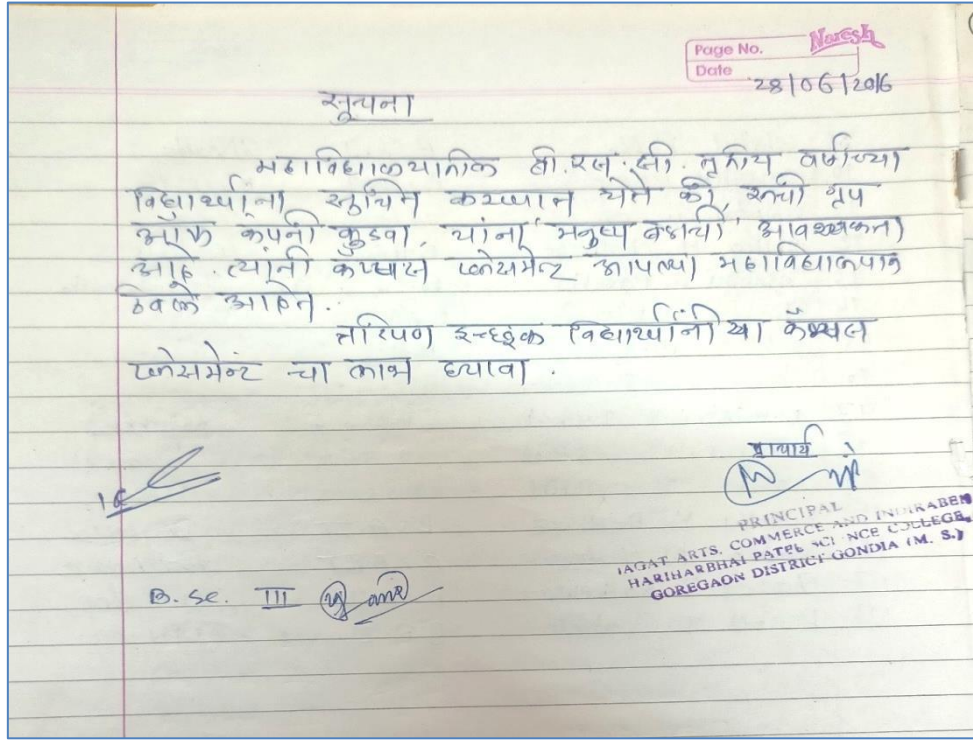 Page No.
Naresh
Date
28/06/2016
सूचना
महाविद्यालयातील बी.एस.सी. तृतीय वर्षाच्या
विद्यार्थ्यांना सूचित करण्यात येते की, रुची ग्रुप
ऑफ कंपनी कुडवा, यांना मनुष्य बळाची आवश्यकता
आहे. त्यांनी कॅम्पस प्लेसमेन्ट आपल्या महाविद्यालयात
ठेवले आहेत.
तरिपण इच्छुक विद्यार्थ्यांनी या कॅम्पस
प्लेसमेंट चा लाभ घ्यावा.
प्राचार्य
PRINCIPAL
JAGAT ARTS, COMMERCE AND INDIRABEN
HARIHARBHAI PATEL SCIENCE COLLEGE,
GOREGAON DISTRICT GONDIA (M. S.)
B.Sc. III